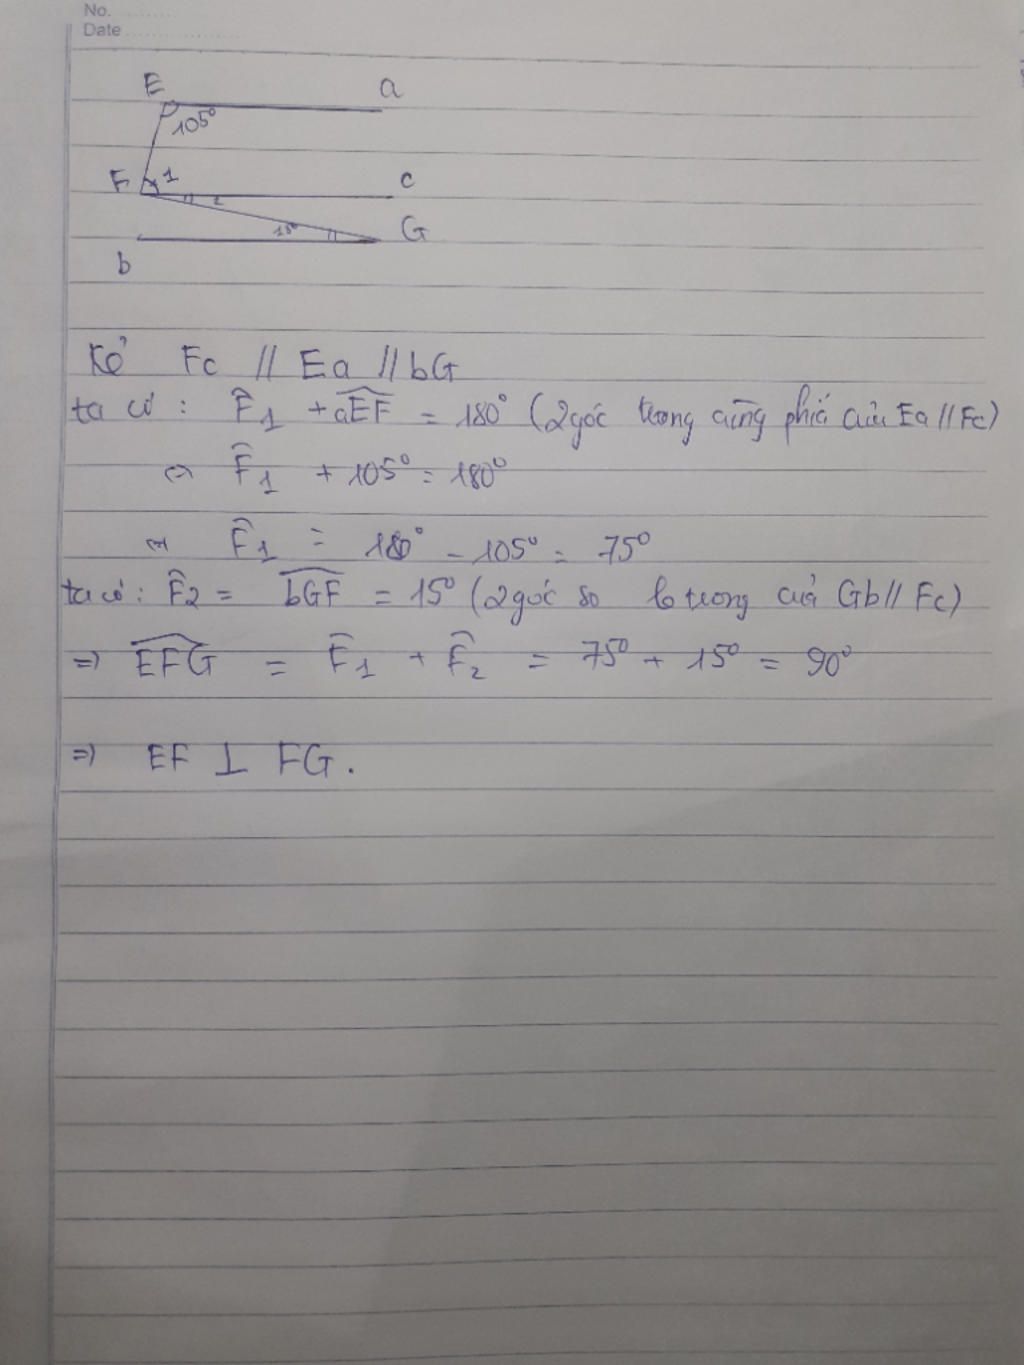 No.
Date
E a
105°
F 1 c
2
15° G
b
Kẻ Fc // Ea // bG
ta có : F̂1 + aEF = 180° (2 góc trong cùng phía của Ea // Fc)
⇔ F̂1 + 105° = 180°
⇔ F̂1 = 180° - 105° = 75°
ta có : F̂2 = bGF = 15° (2 góc so le trong của Gb // Fc)
=> EFG = F̂1 + F̂2 = 75° + 15° = 90°
=> EF ⊥ FG.